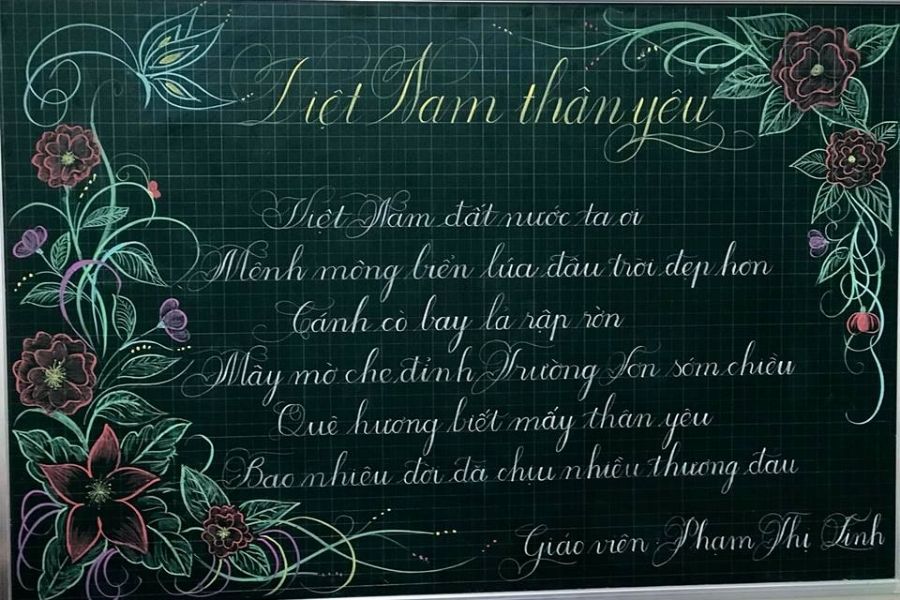 Việt Nam thân yêu
Việt Nam đất nước ta ơi
Mênh mông biển lúa đâu trời đẹp hơn
Cánh cò bay lả rập rờn
Mây mờ che đỉnh Trường Sơn sớm chiều
Quê hương biết mấy thân yêu
Bao nhiêu đời đã chịu nhiều thương đau
Giáo viên: Phạm Thị Tính